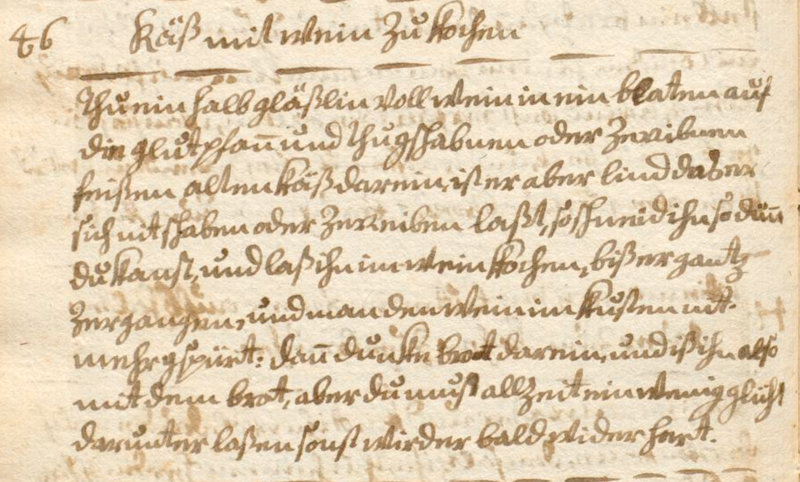 46 Käß mit wein zu kochen
Thu ein halb gläßlin voll wein in ein blaten auf
die glutpfan̄ und thu gschabnen oder zeribnen
feißen alten käß darein, ist er aber lind das er
sich nit schaben oder zerreiben laßt, so schneid ihn so dün̄
du kanst, und laß ihn im wein kochen, biß er gantz
zergangen, und man den wein im kusten nit
mehr gspürt: dan̄ dunke brot darein, und iß ihn also
mit dem brot, aber du must allzeit ein wenig glüht
darunter laßen sonst wird er bald wider hart.